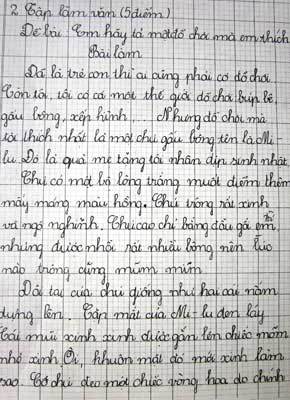 2. Tập làm văn (5 điểm)
Đề bài: Em hãy tả một đồ chơi mà em thích
Bài làm
Đã là trẻ con thì ai cũng phải có đồ chơi.
Còn tôi, tôi có cả một thế giới đồ chơi: búp bê,
gấu bông, xếp hình.... Nhưng đồ chơi mà
tôi thích nhất là một chú gấu bông tên là Mi-
lu. Đó là quà mẹ tặng tôi nhân dịp sinh nhật.
Chú có một bộ lông trắng muốt điểm thêm
mấy mảng màu hồng. Chú trông rất xinh
và ngộ nghĩnh. Chú cao chỉ bằng đầu gối em
nhưng được nhồi rất nhiều bông nên lúc
nào trông cũng mũm mĩm.
Đôi tai của chú giống như hai cái nấm
dựng lên. Cặp mắt của Mi-lu đen láy.
Cái mũi xinh xinh được gắn lên chiếc mõm
nhỏ xinh. Ôi, khuôn mặt đó mới xinh làm
sao. Cổ chú đeo một chiếc vòng hoa do chính